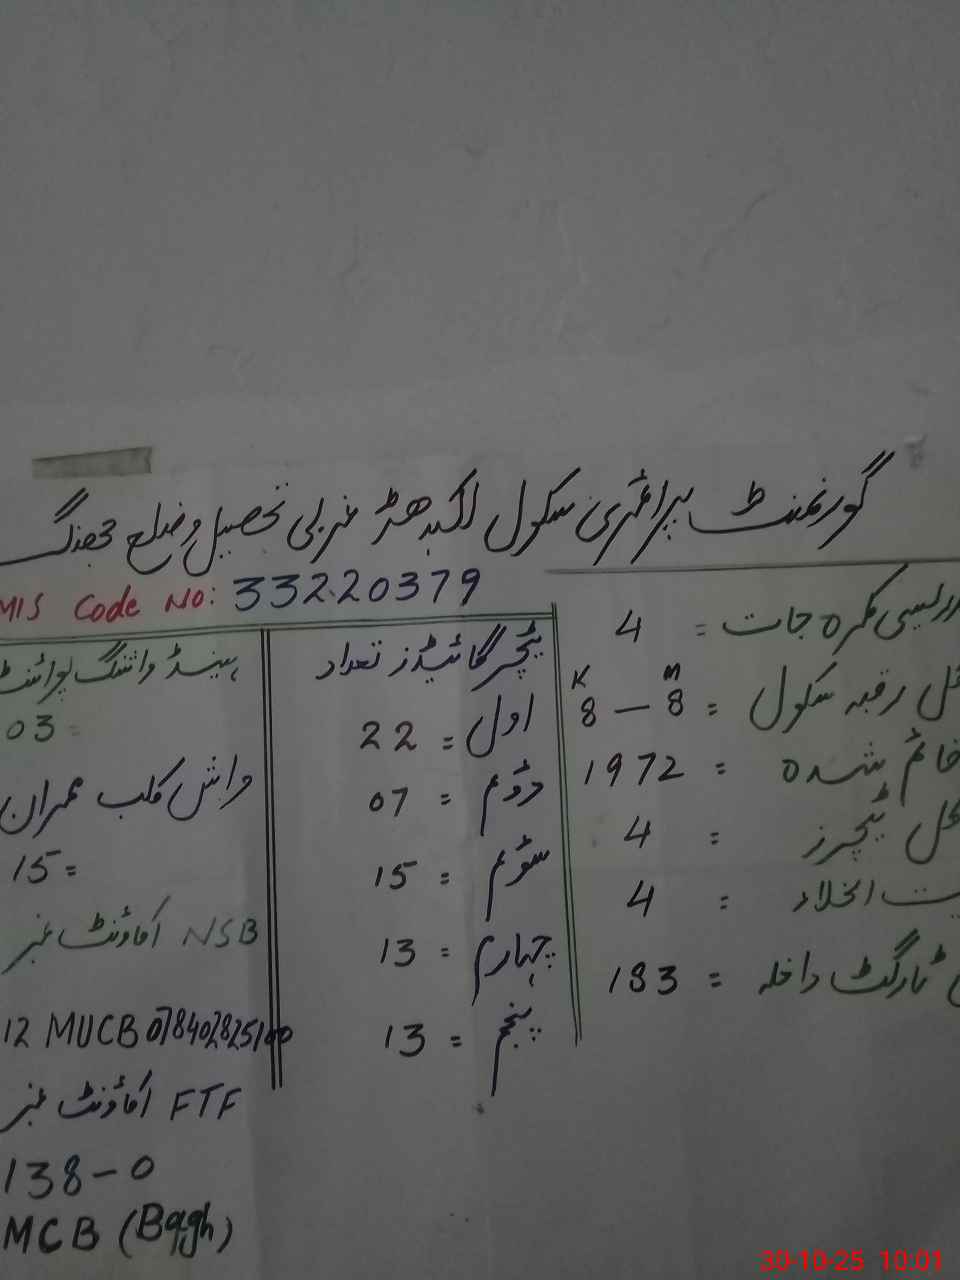 گورنمنٹ پرائمری سکول لکبدھڑ غربی تحصیل و ضلع جھنگ
MIS Code No: 33220379
تدریسی کمرہ جات = 4
کل رقبہ سکول = 8 — 8
K M
قائم شدہ = 1972
کل ٹیچرز = 4
بیت الخلاء = 4
ٹارگٹ داخلہ = 183
ٹیچر گائیڈز تعداد
اول = 22
دوئم = 07
سوئم = 15
چہارم = 13
پنجم = 13
ہینڈ واشنگ پوائنٹ
03 =
واش کلب ممبران
15 =
NSB اکاؤنٹ نمبر
12 MUCB 078402825100
FTF اکاؤنٹ نمبر
138-0
MCB (Bagh)
30-10-25 10:01